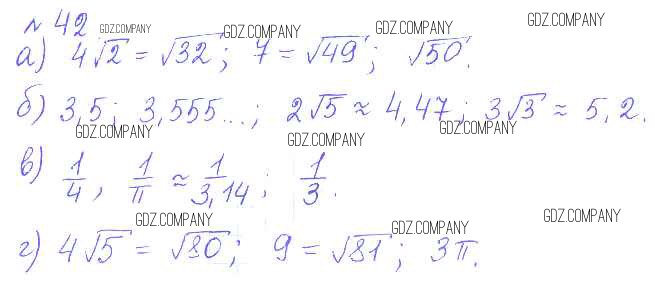 № 42
GDZ.COMPANY GDZ.COMPANY GDZ.COMPANY GDZ.COMPANY
а) 4√2 = √32; 7 = √49; √50.
б) 3,5; 3,555...; 2√5 ≈ 4,47; 3√3 ≈ 5,2.
GDZ.COMPANY GDZ.COMPANY GDZ.COMPANY
в) 1/4, 1/π ≈ 1/3,14; 1/3.
GDZ.COMPANY GDZ.COMPANY GDZ.COMPANY
г) 4√5 = √80; 9 = √81; 3π.